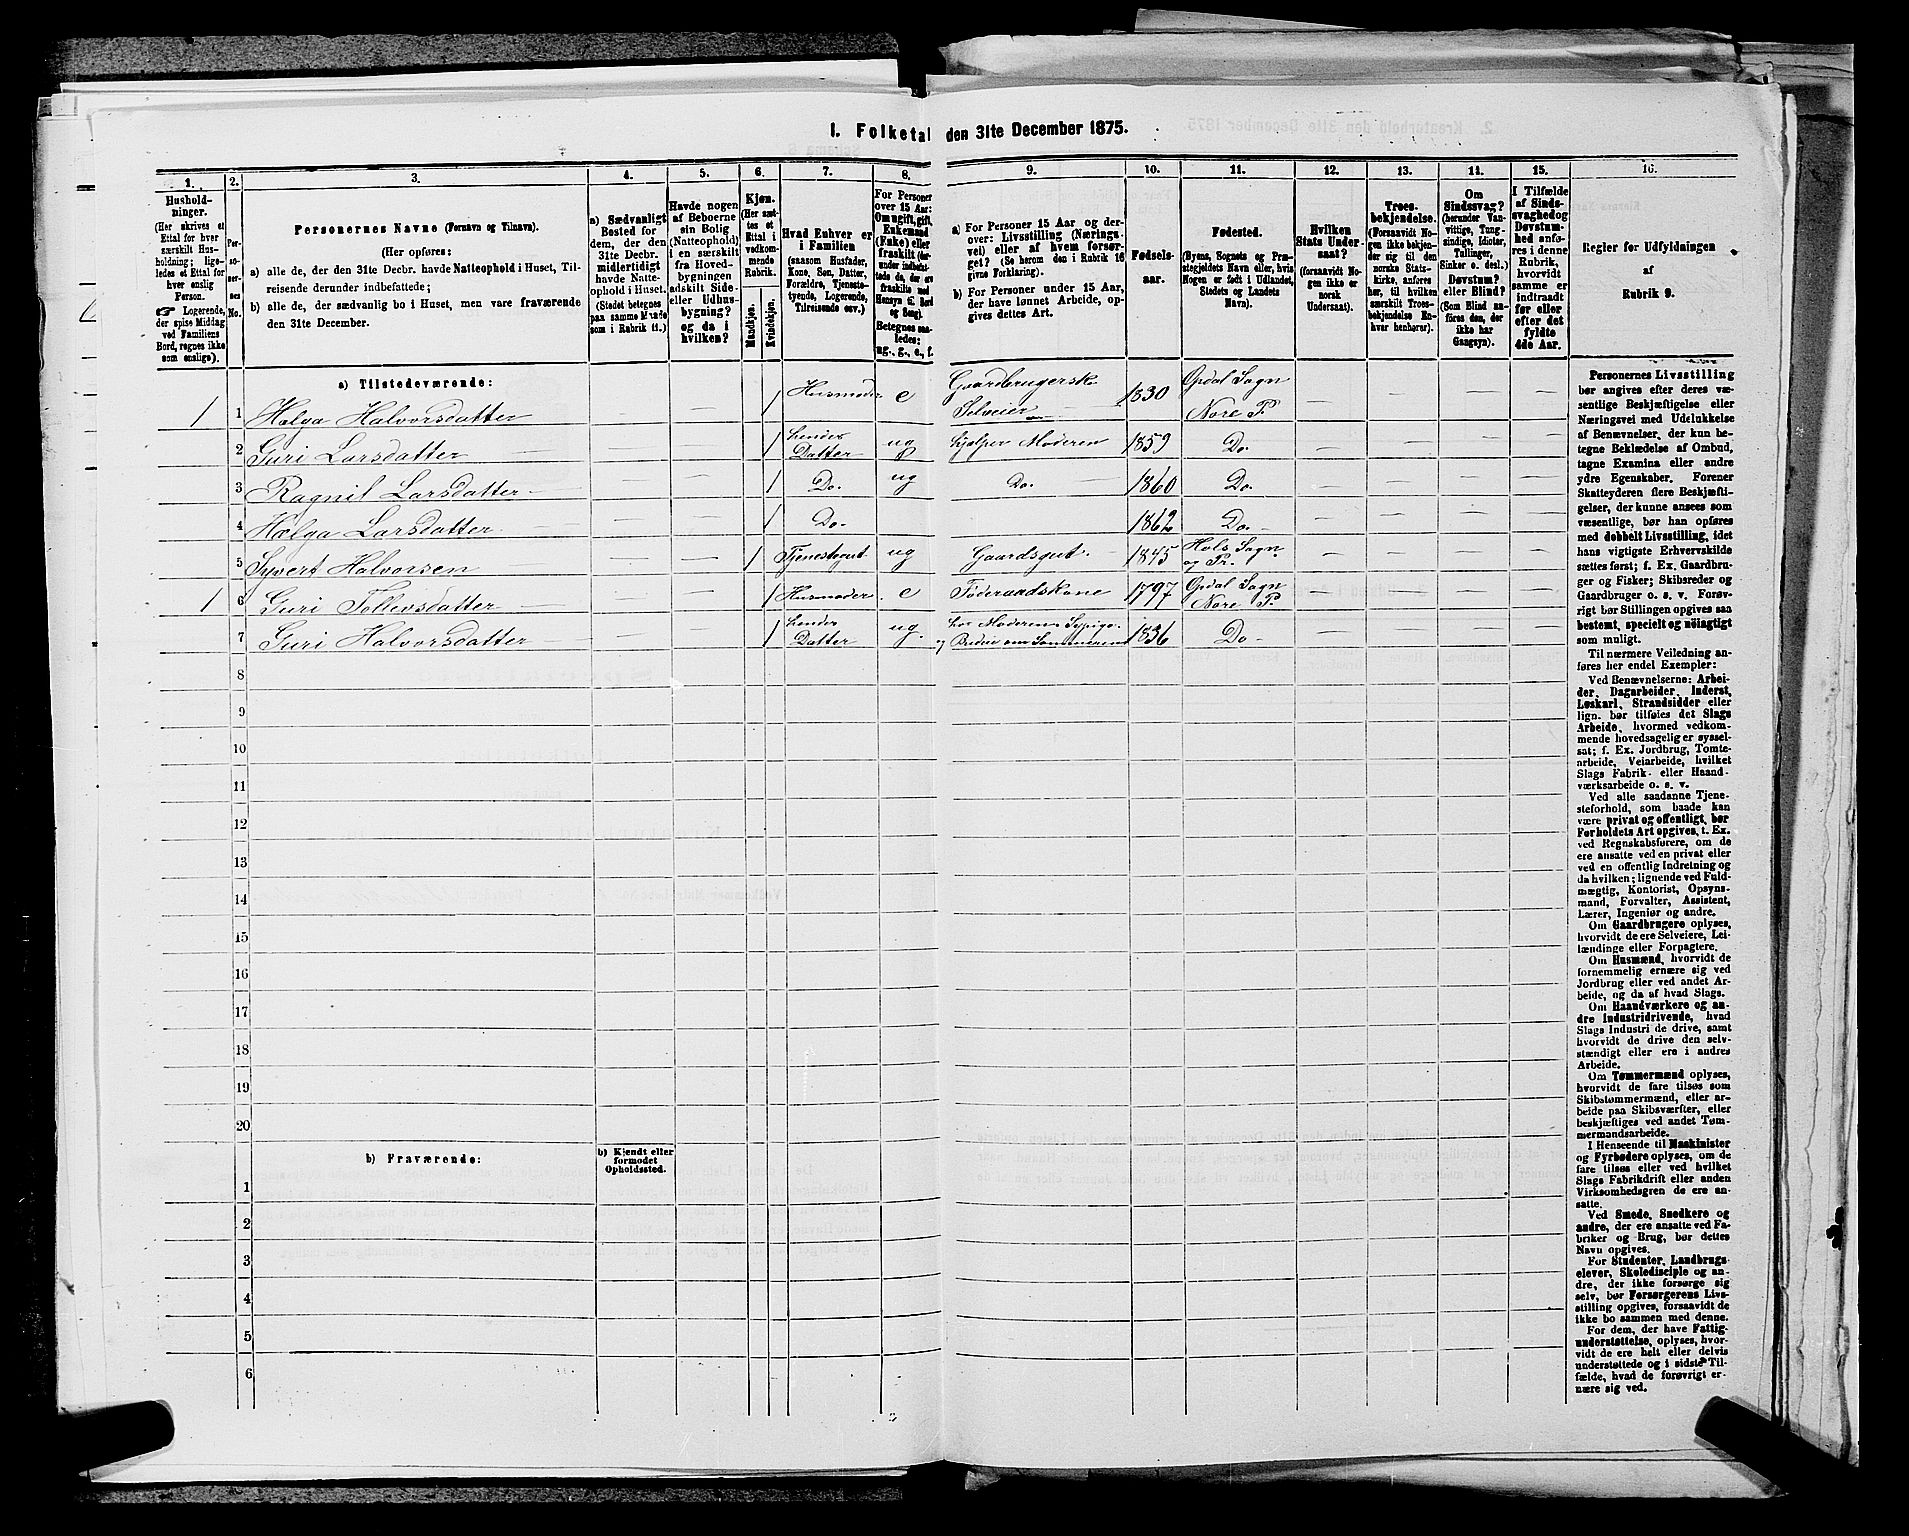 I. Folketal den 31te December 1875.
1. 2. 3. 4. 5. 6. 7. 8. 9. 10. 11. 12. 13. 14. 15. 16.
Husholdninger.
(Her skrives et
Ettal for hver
særskilt Hus-
holdning; lige-
ledes et Ettal for
hver enslig
Person.
☞ Logerende,
der spise Middag
ved Familiens
Bord, regnes ikke
som enslige).
Per-
so-
ner-
nes
No.
Personernes Navne (Fornavn og Tilnavn).
(Her opføres:
a) alle de, der den 31te Decbr. havde Natteophold i Huset, Til-
reisende derunder indbefattede;
b) alle de, der sædvanlig bo i Huset, men vare fraværende
den 31te December.
a) Sædvanligt
Bosted for
dem, der den
31te Decbr.
midlertidigt
havde Natte-
ophold i Huset.
(Stedet betegnes
paa samme Maade
som i Rubrik 11.)
Havde nogen
af Beboerne
sin Bolig
(Natteophold)
i en særskilt
fra Hoved-
bygningen
adskilt Side-
eller Udhus-
bygning?
og da i
hvilken?
Kjøn.
(Her sæt-
tes et
Ettal i
vedkom-
mende
Rubrik.
Mandkjøn.
Kvindekjøn.
Hvad Enhver er
i Familien
(saasom Husfader,
Kone, Søn, Datter,
Forældre, Tjeneste-
tyende, Logerende,
Tilreisende osv.)
For Personer
over 15 Aar:
Om ugift, gift,
Enkemand
(Enke) eller
fraskilt
Betegnes saa-
ledes:
ug., g., e., f.
a) For Personer 15 Aar og der-
over: Livsstilling (Nærings-
vei) eller af hvem forsør-
get? (Se herom den i Rubrik 16
givne Forklaring).
b) For Personer under 15 Aar,
der have lønnet Arbeide, op-
gives dettes Art.
Fødsels-
aar.
Fødested.
(Byens, Sognets og Præ-
stegjeldets Navn eller, hvis
Nogen er født i Udlandet,
Stedets og Landets
Navn).
Hvilken
Stats Under-
saat?
(forsaavidt No-
gen ikke er
norsk
Undersaat).
Troes-
bekjendelse.
(Forsaavidt No-
gen ikke bekjen-
der sig til den
norske Stats-
kirke, anføres
her, til hvilken
særskilt Troes-
bekjendelse En-
hver henhører).
Om
Sindssvag?
(herunder Van-
vittige, Tung-
sindige, Idioter,
Tullinger,
Sinker o. desl.)
Døvstum?
eller Blind?
(Som Blind an-
føres den, der
ikke har
Gangsyn).
I Tilfælde
af Sinds-
svaghed og
Døvstum-
hed anfø-
res i denne
Rubrik,
hvorvidt
samme er
indtraadt
før eller
efter det
fyldte
4de Aar.
Regler for Udfyldningen
af
Rubrik 9.
a) Tilstedeværende:
1 1 Helga Halvorsdatter — — 1 Husmoder e Gaardbrugersk Selveier 1830 Opdal Sogn Nore P. — — — —
2 Guri Larsdatter — — 1 hendes Datter ug hjelper Moderen 1859 Do. — — — —
3 Ragnil Larsdatter — — 1 Do. ug Do. 1860 Do. — — — —
4 Helga Larsdatter — — 1 Do. 1862 Do. — — — —
5 Syvert Halvorsen — — 1 Tjenestegut ug Gaardsgut. 1845 Hols Sogn og Pr. — — — —
1 6 Guri Tollevsdatter — — 1 Husmoder. e Føderaadskone 1797 Opdal Sogn Nore P. — — — —
7 Guri Halvorsdatter — — 1 hendes Datter ug. hos Moderen Sypige og Budeie om Sommeren 1836 Do — — — —
8
9
10
11
12
13
14
15
16
17
18
19
20
b) Fraværende:
b) Kjendt eller
formodet
Opholdssted.
1
2
3
4
5
6
Personernes Livsstilling
bør angives efter deres væ-
sentlige Beskjæftigelse eller
Næringsvei med Udelukkelse
af Benævnelser, der kun be-
tegne Beklædelse af Ombud,
tagne Examina eller andre
ydre Egenskaber. Forener
Skatteyderen flere Beskjæfti-
gelser, der kunne ansees som
væsentlige, bør han opføres
med dobbelt Livsstilling, idet
hans vigtigste Erhvervskilde
sættes først; f. Ex. Gaardbru-
ger og Fisker; Skibsreder og
Gaardbruger o. s. v. Forøv-
rigt bør Stillingen opgives saa
bestemt, specielt og nøiagtigt
som muligt.
Til nærmere Veiledning an-
føres her endel Exempler:
Ved Benævnelserne: Arbei-
der, Dagarbeider, Inderst,
Løskarl, Strandsidder eller
lign. bør tilføies det Slags
Arbeide, hvormed vedkom-
mende hovedsagelig er syssel-
sat; f. Ex. Jordbrug, Tomte-
arbeide, Veiarbeide, hvilket
Slags Fabrik- eller Haand-
værksarbeide o. s. v.
Ved alle saadanne Tjene-
steforhold, som baade kan
være privat og offentligt, bør
Forholdets Art opgives, t. Ex.
ved Regnskabsførere, om de
ere ansatte ved en privat eller
ved en offentlig Indretning og
da hvilken; lignende ved Fuld-
mægtig, Kontorist, Opsyns-
mand, Forvalter, Assistent,
Lærer, Ingeniør og andre.
Om Gaardbrugere oplyses,
hvorvidt de ere Selveiere, Lei-
lændinge eller Forpagtere.
Om Husmænd, hvorvidt de
fornemmelig ernære sig ved
Jordbrug eller ved andet Ar-
beide, og da af hvad Slags.
Om Haandværkere og an-
dre Industridrivende, hvad
Slags Industri de drive, samt
hvorvidt de drive den selv-
stændigt eller ere i andres
Arbeide.
Om Tømmermænd oplyses,
hvorvidt de fare tilsøs som
Skibstømmermænd, eller ar-
beide paa Skibsværfter, eller
beskjæftiges ved andet Tøm-
mermandsarbeide.
I Henseende til Maskinister
og Fyrbødere oplyses, om de
fare tilsøs eller ved hvilket
Slags Fabrikdrift eller anden
Virksomhedsgren de ere an-
satte.
Ved Smede, Snedkere og
andre, der ere ansatte ved Fa-
briker og Brug, bør dettes
Navn opgives.
For Studenter, Landbrugs-
elever, Skoledisciple og an-
dre, der ikke forsørge sig
selv, bør Forsørgerens Livs-
stilling opgives, forsaavidt de
ikke bo sammen med denne.
For dem, der have Fattig-
understøttelse, oplyses, hvor-
vidt de ere helt eller delvis
understøttede og i sidste Til-
fælde, hvad de forøvrigt er-
nære sig ved.